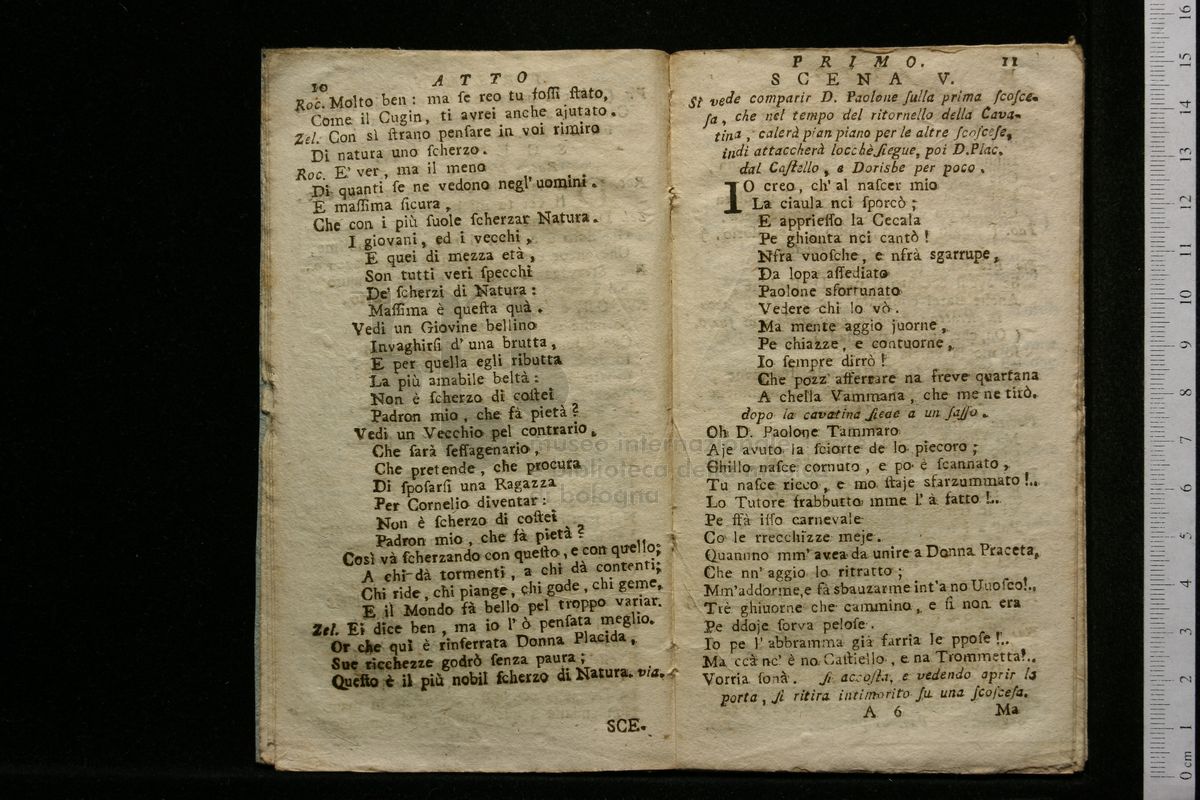 10
ATTO
Roc. Molto ben: ma ſe reo tu foſſi ſtato,
Come il Cugin, ti avrei anche ajutato.
Zel. Con sì ſtrano penſare in voi rimiro
Di natura uno ſcherzo.
Roc. E' ver, ma il meno
Di quanti ſe ne vedono negl' uomini.
E maſſima ſicura,
Che con i più ſuole ſcherzar Natura.
I giovani, ed i vecchi,
E quei di mezza età,
Son tutti veri ſpecchi
De' ſcherzi di Natura:
Maſſima è queſta quà.
Vedi un Giovine bellino
Invaghirſi d' una brutta,
E per quella egli ributta
La più amabile beltà:
Non è ſcherzo di coſtei
Padron mio, che fà pietà?
Vedi un Vecchio pel contrario,
Che farà ſeſſagenario,
Che pretende, che procura
Di ſpoſarſi una Ragazza
Per Cornelio diventar:
Non è ſcherzo di coſtei
Padron mio, che fà pietà?
Così và ſcherzando con queſto, e con quello;
A chi dà tormenti, a chi dà contenti;
Chi ride, chi piange, chi gode, chi geme,
E il Mondo fà bello pel troppo variar.
Zel. Ei dice ben, ma io l' ò penſata meglio.
Or che quì è rinſerrata Donna Placida,
Sue ricchezze godrò ſenza paura;
Queſto è il più nobil ſcherzo di Natura. via.
SCE.
PRIMO. 11
SCENA V.
Si vede comparir D. Paolone ſulla prima ſcoſce-
ſa, che nel tempo del ritornello della Cava-
tina, calerà pian piano per le altre ſcoſceſe,
indi attaccherà locchè ſiegue, poi D. Plac.
dal Caſtello, e Dorisbe per poco.
IO creo, ch' al naſcer mio
La ciaula nci ſporcò;
E apprieſſo la Cecala
Pe ghionta nci cantò!
Nfra vuoſche, e nfrà sgarrupe,
Da lopa aſſediato
Paolone sfortunato
Vedere chi lo vò.
Ma mente aggio juorne,
Pe chiazze, e contuorne,
Io ſempre dirrò!
Che pozz' afferrare na freve quartana
A chella Vammana, che me ne tirò.
dopo la cavatina ſiede a un ſaſſo.
Oh D. Paolone Tammaro
Aje avuto la ſciorte de lo piecoro;
Chillo naſce cornuto, e po è ſcannato,
Tu naſce ricco, e mo ſtaje sfarzummato!..
Lo Tutore frabbutto mme l' à fatto!..
Pe ffà iſſo carnevale
Co le rrecchizze meje.
Quannno mm' avea da unire a Donna Praceta,
Che nn' aggio lo ritratto;
Mm'addorme, e fà sbauzarme int'a no Uuoſco!..
Trè ghiuorne che cammino, e ſi non era
Pe ddoje ſorva peloſe.
Io pe l' abbramma già farria le ppoſe!..
Ma ccà nc' è no Caſtiello, e na Trommetta!..
Vorria ſonà. ſi accoſta, e vedendo aprir la
porta, ſi ritira intimorito ſu una ſcoſceſa.
A 6 Ma
museo internazionale
biblioteca della musica
bologna
0 cm 1 2 3 4 5 6 7 8 9 10 11 12 13 14 15 16